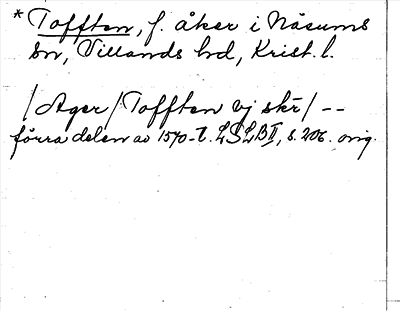 * Tofften, f. åker i Näsums
sn, Villands hd, Krist. l.
/Ager/Tofften vj skr/ --
förra delen av 1570-t. LSLBII, s. 206. orig.